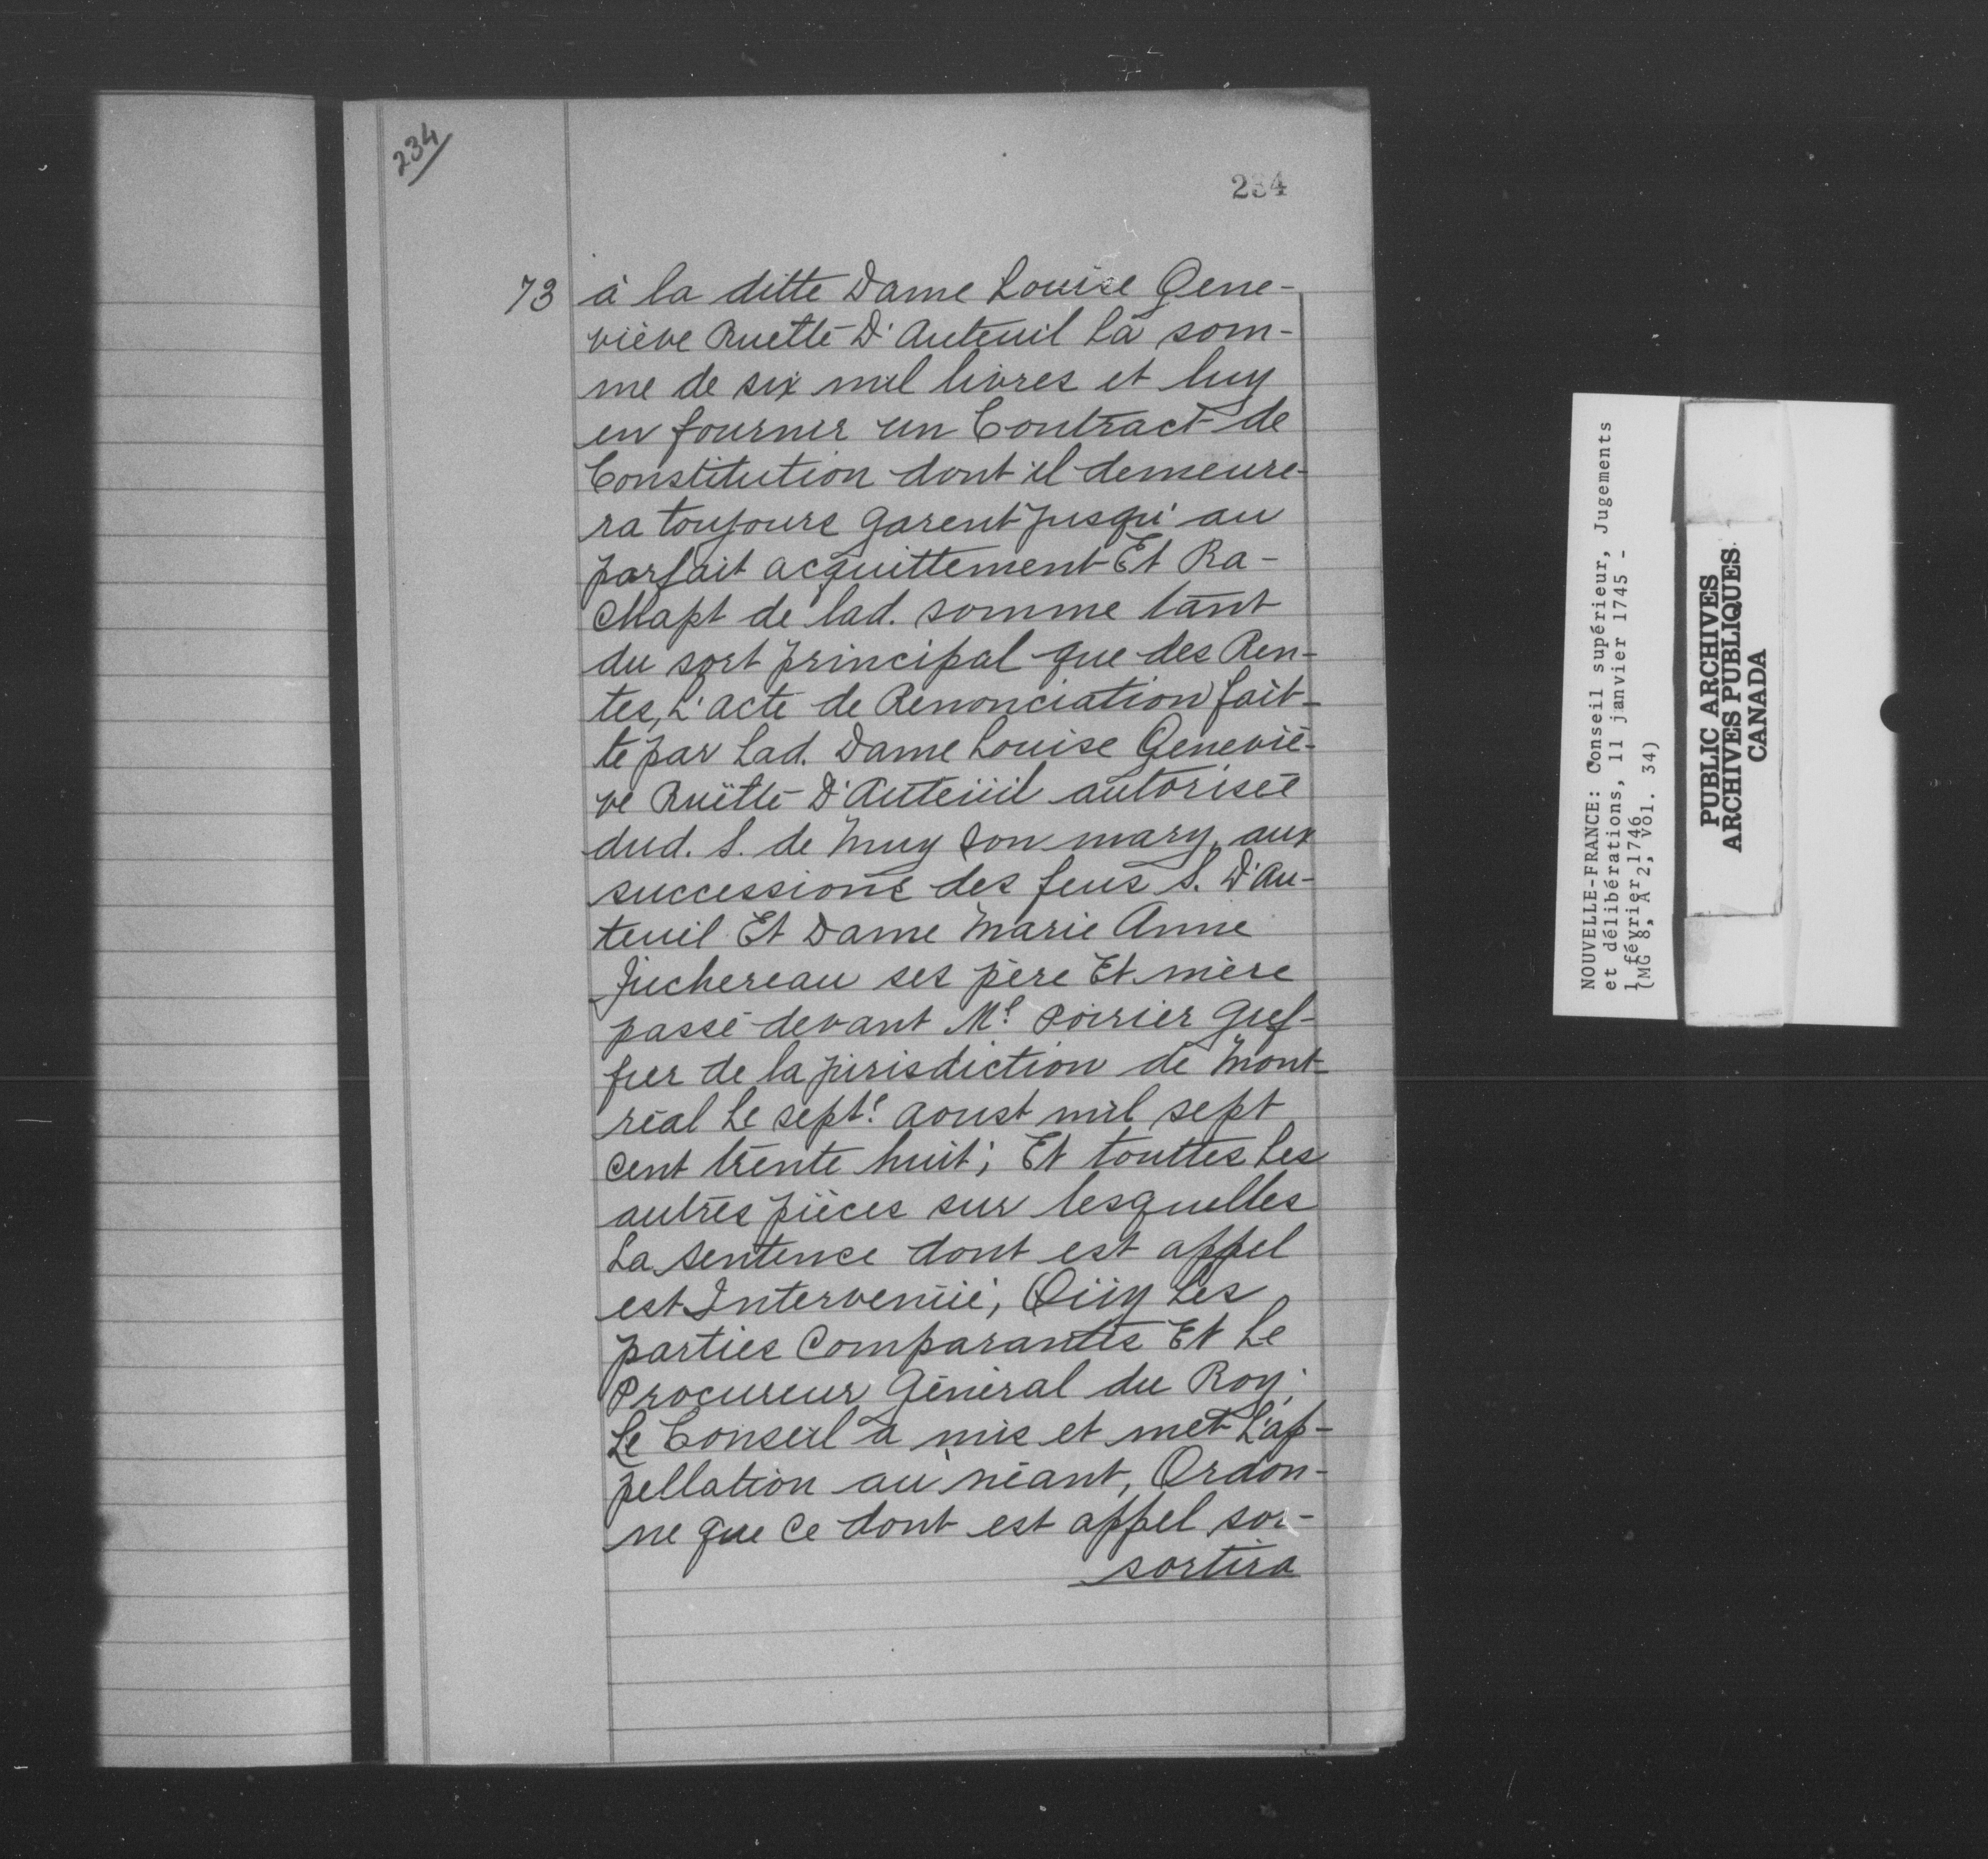 234
234
73 à la ditte Dame Louise Gene-
viève Ruette D'Auteuil la som-
me de six mil livres et luy
en fournir un Contract de
Constitution dont il demeure-
ra toujours garent jusqu'au
parfait acquittement Et Ra-
chapt de lad. somme tant
du sort principal que des Ren-
tes, L'acte de Renonciation fait-
te par Lad. Dame Louise Geneviè-
ve Ruëtte D'Auteüil autorisée
dud. S. de Muy son mary, aux
successions des feus S. D'Au-
teuil Et Dame Marie Anne
Juchereau ses père Et mère
passé devant Me. Poirier Gref-
fier de la jurisdiction de Mont-
réal Le sept e. aoust mil sept
cent trente huit; Et touttes Les
autres pièces sur lesquelles
La sentence dont est appel
est Intervenüe; Oüy Les
parties Comparantes Et Le
Procureur Général du Roy;
Le Conseil a mis et met L'ap-
pellation au néant, Ordon-
ne que Ce dont est appel sor-
sortira
NOUVELLE-FRANCE: Conseil supérieur, Jugements
et délibérations, 11 janvier 1745 -
1 février 1746
(MG 8, A 2, vol. 34)
PUBLIC ARCHIVES
ARCHIVES PUBLIQUES
CANADA